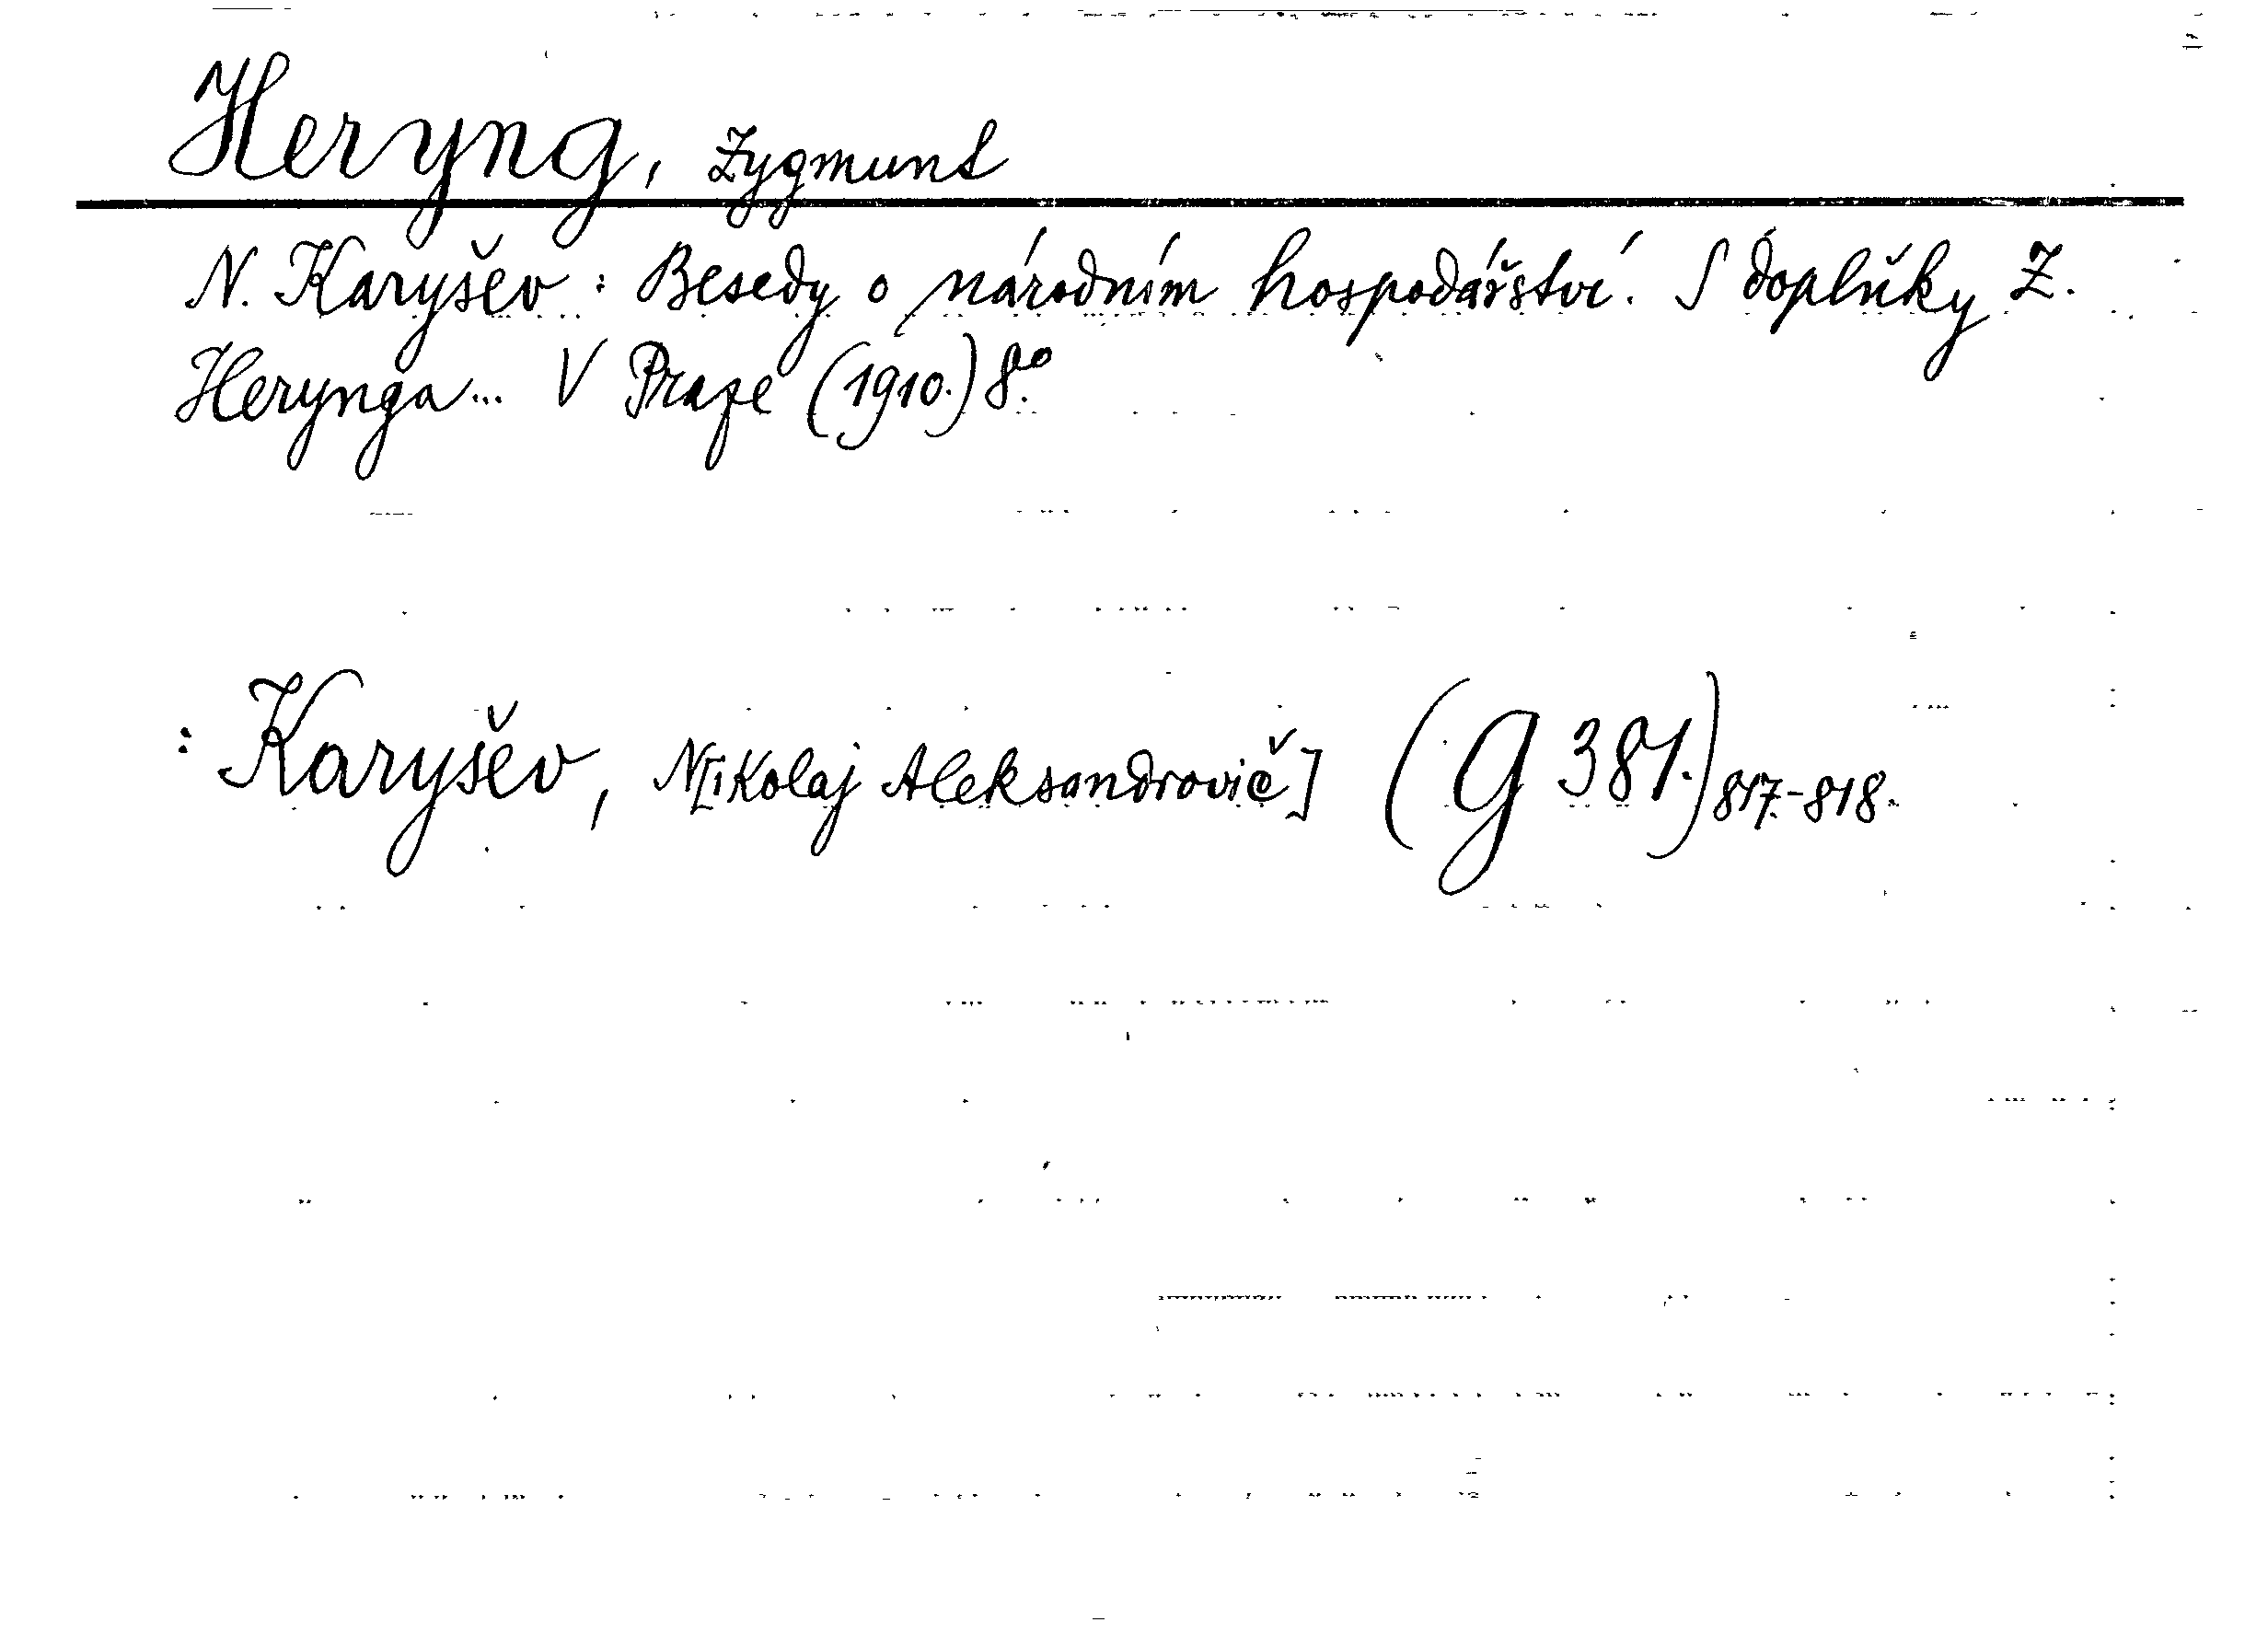 Heryng, Zygmunt
N. Karyšev: Besedy o národním hospodářství. S doplňky Z.
Herynga... V Praze (1910.) 8º.
: Karyšev, N[ikolaj Aleksandrovič] (G 381.) 817.-818.